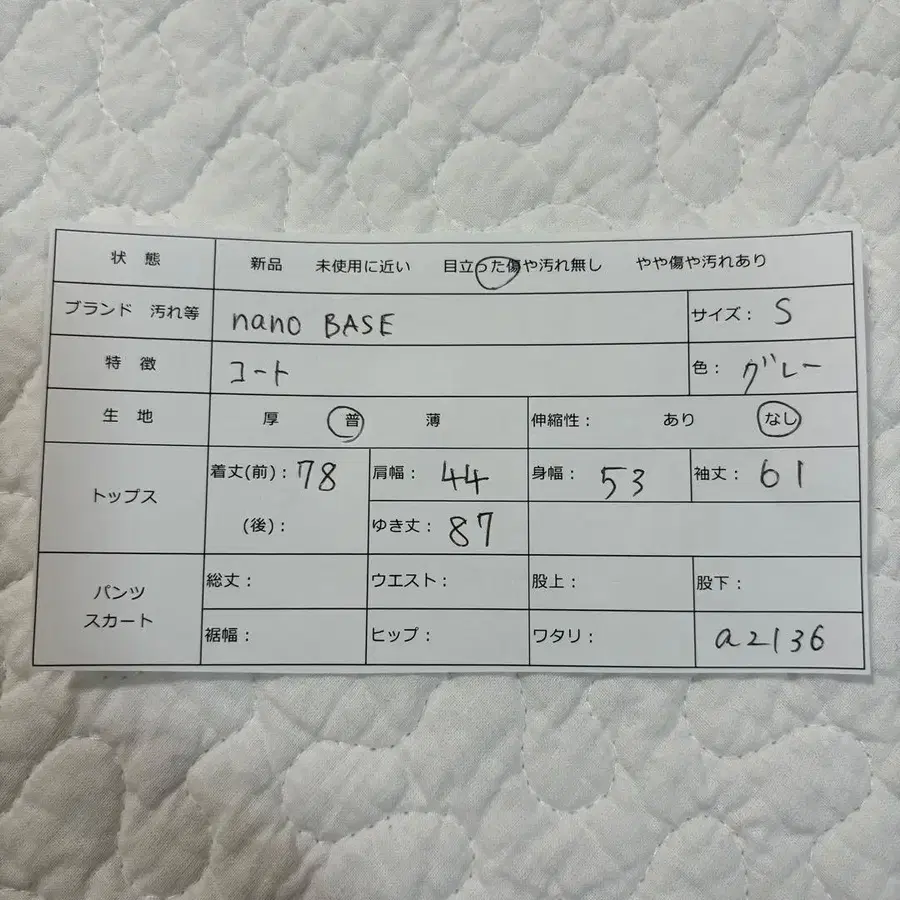 状 態 新品 未使用に近い 目立った傷や汚れ無し やや傷や汚れあり
ブランド 汚れ等 nano BASE サイズ： S
特 徴 コート 色： グレー
生 地 厚 普 薄 伸縮性： あり なし
トップス 着丈(前)： 78 肩幅： 44 身幅： 53 袖丈： 61
(後)： ゆき丈： 87
パンツ スカート 総丈： ウエスト： 股上： 股下：
裾幅： ヒップ： ワタリ： a2136